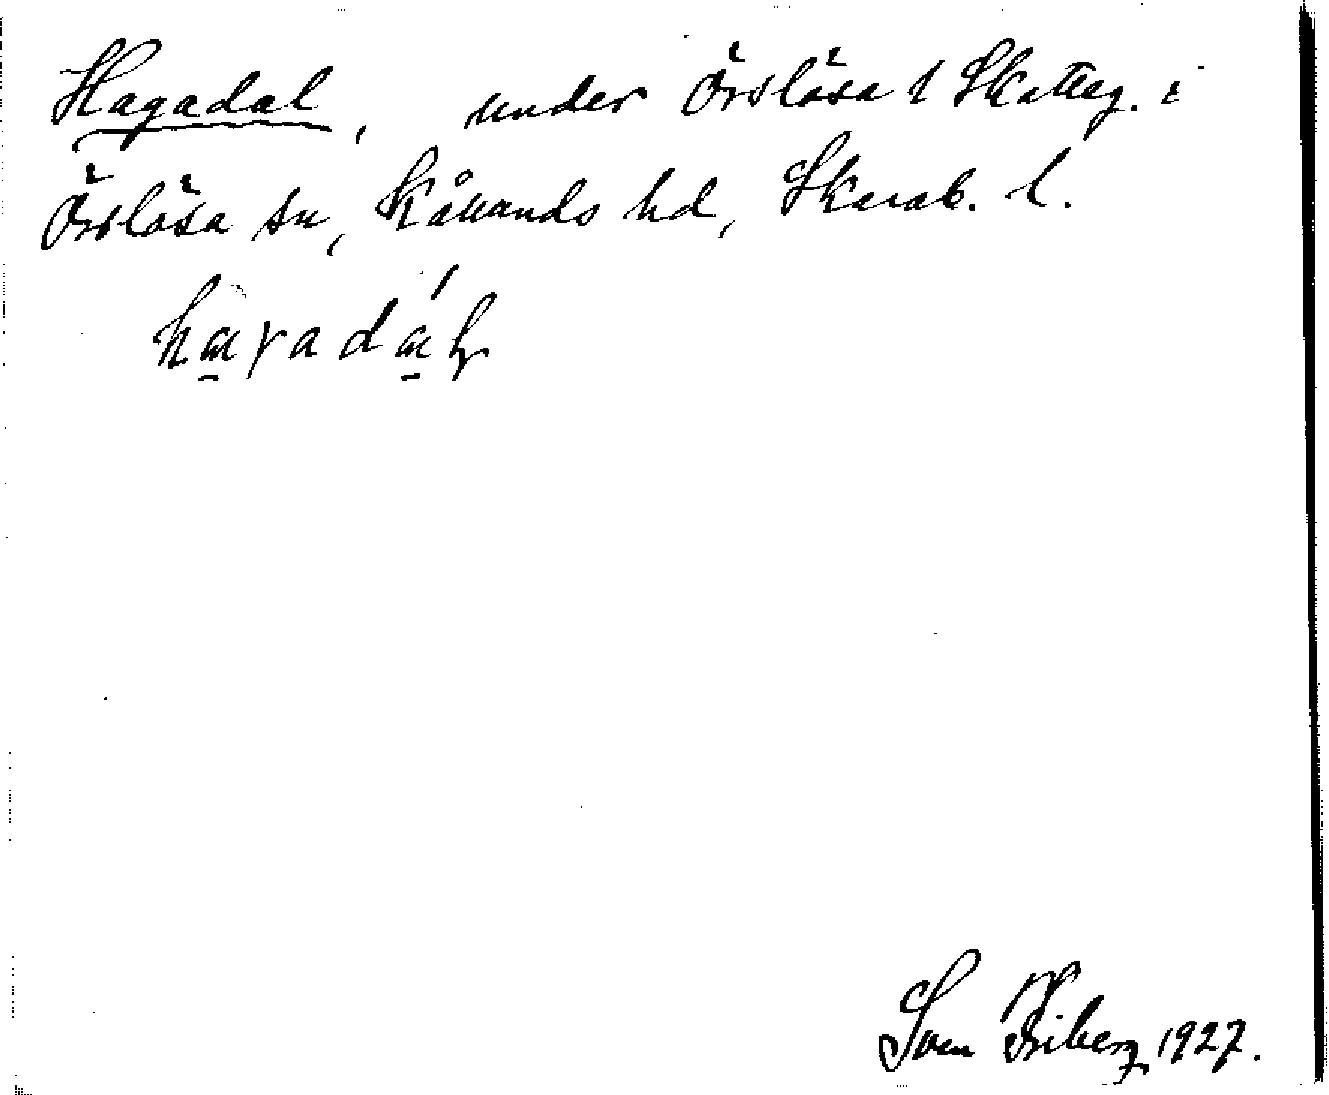 Hagadal, under Örslösa 1 Skatteg. i
Örslösa sn, Kållands hd, Skarab. l.
Sven Friberg 1927.